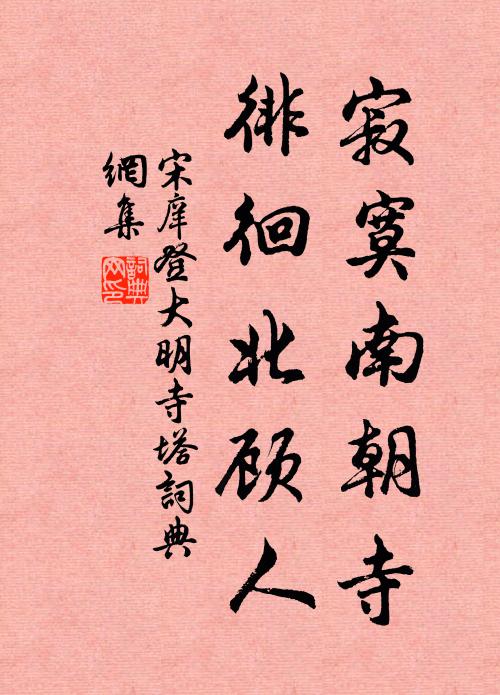 寂寞南朝寺
徘徊北顾人
宋庠登大明寺塔詞典
網集
詞典網印